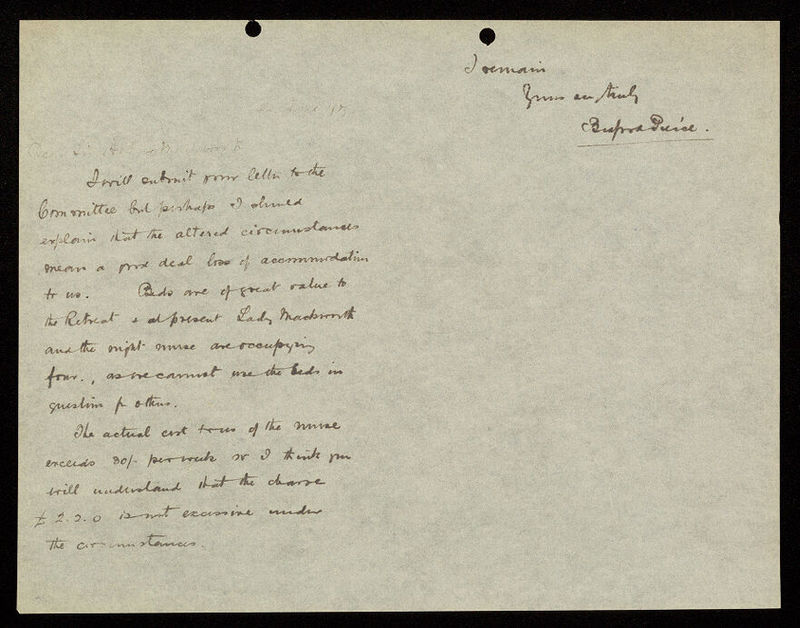 I will submit your letter to the
Committee but perhaps I should
explain that the altered circumstances
mean a good deal loss of accommodation
to us. Beds are of great value to
the Retreat & at present Lady Mackworth
and the night nurse are occupying
four, as we cannot use the beds in
question for others.
The actual cost to us of the nurse
exceeds 30/- per week so I think you
will understand that the charge
£ 2.2.0 is not excessive under
the circumstances.
I remain
Yours truly
Bedford Pierce.